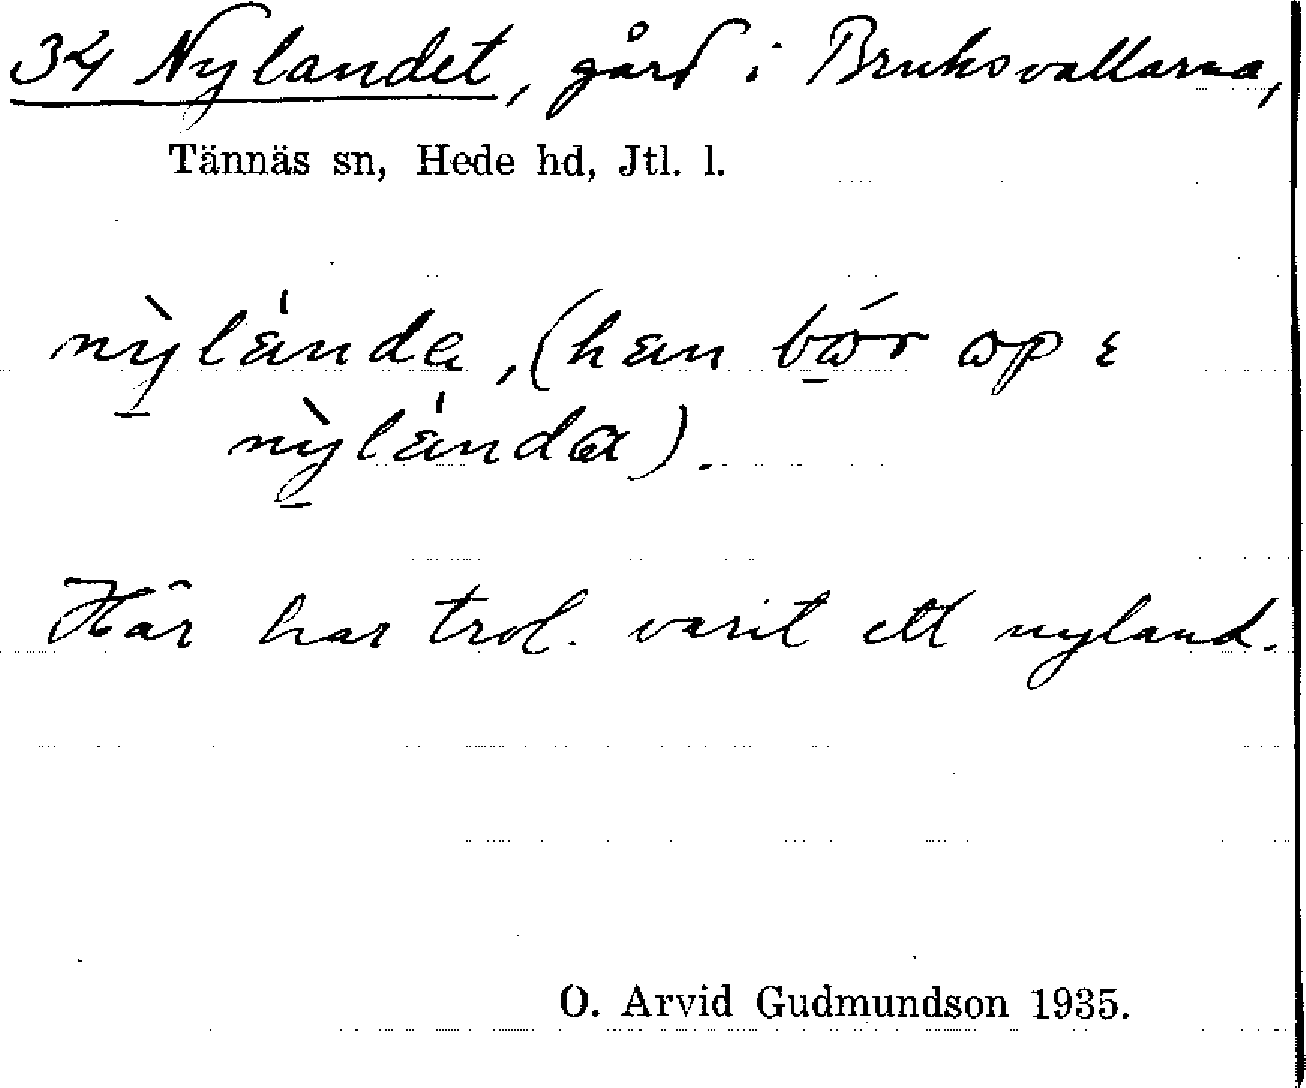 34 Nylandet, gård i Bruksvallarna,
Tännäs sn, Hede hd, Jtl. l.
nỳlánda, (han bor op i
nỳlánda).
Här har trol. varit ett nyland.
O. Arvid Gudmundson 1935.